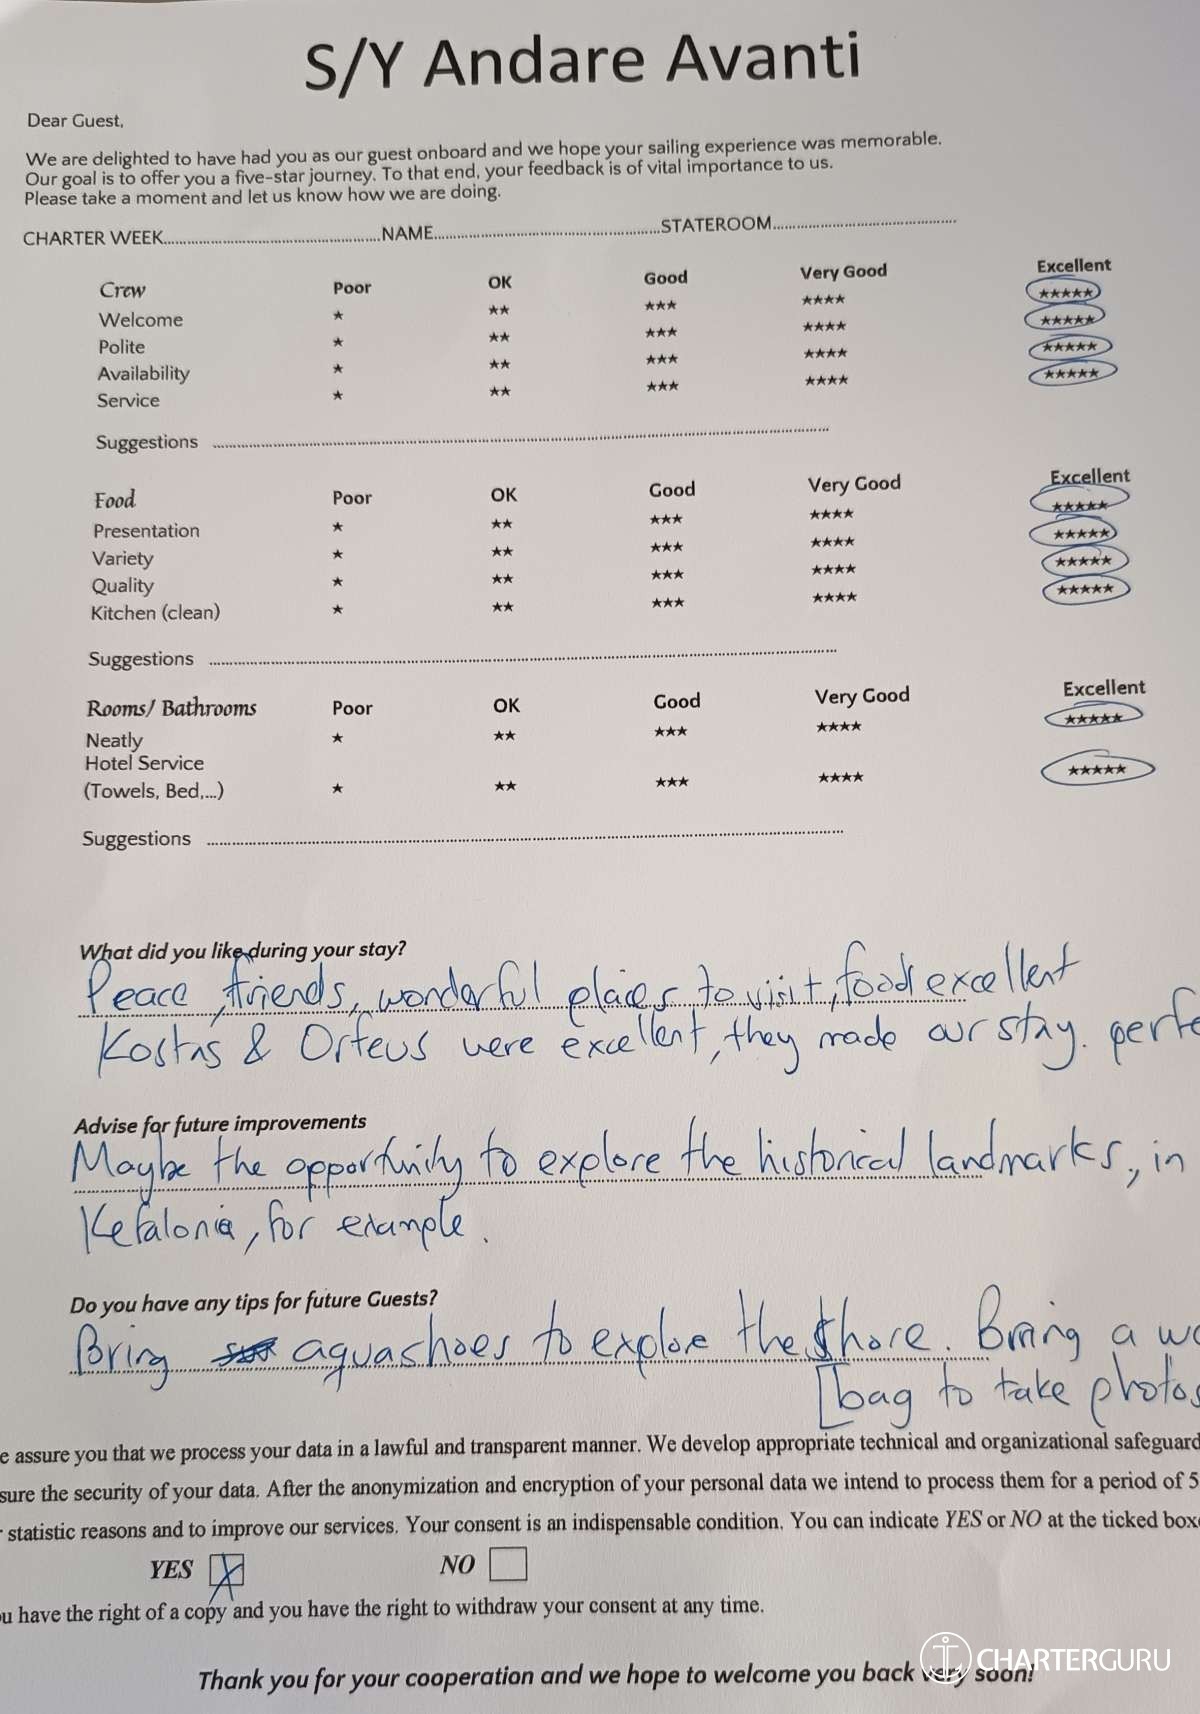 S/Y Andare Avanti
Dear Guest,
We are delighted to have had you as our guest onboard and we hope your sailing experience was memorable.
Our goal is to offer you a five-star journey. To that end, your feedback is of vital importance to us.
Please take a moment and let us know how we are doing.
CHARTER WEEK....................NAME....................STATEROOM....................
Crew Poor OK Good Very Good Excellent
Welcome ★ ★★ ★★★ ★★★★ ★★★★★
Polite ★ ★★ ★★★ ★★★★ ★★★★★
Availability ★ ★★ ★★★ ★★★★ ★★★★★
Service ★ ★★ ★★★ ★★★★ ★★★★★
Suggestions ....................
Food Poor OK Good Very Good Excellent
Presentation ★ ★★ ★★★ ★★★★ ★★★★★
Variety ★ ★★ ★★★ ★★★★ ★★★★★
Quality ★ ★★ ★★★ ★★★★ ★★★★★
Kitchen (clean) ★ ★★ ★★★ ★★★★ ★★★★★
Suggestions ....................
Rooms/ Bathrooms Poor OK Good Very Good Excellent
Neatly ★ ★★ ★★★ ★★★★ ★★★★★
Hotel Service
(Towels, Bed,...) ★ ★★ ★★★ ★★★★ ★★★★★
Suggestions ....................
What did you like during your stay?
Peace, friends, wonderful places to visit, food excellent
Kostas & Orfeus were excellent, they made our stay. perfe
Advise for future improvements
Maybe the opportunity to explore the historical landmarks, in
Kefalonia, for example.
Do you have any tips for future Guests?
Bring aquashoes to explore the shore. Bring a
bag to take photos
e assure you that we process your data in a lawful and transparent manner. We develop appropriate technical and organizational safeguard
sure the security of your data. After the anonymization and encryption of your personal data we intend to process them for a period of 5
statistic reasons and to improve our services. Your consent is an indispensable condition. You can indicate YES or NO at the ticked box
YES X NO
ou have the right of a copy and you have the right to withdraw your consent at any time.
Thank you for your cooperation and we hope to welcome you back very soon!
CHARTERGURU